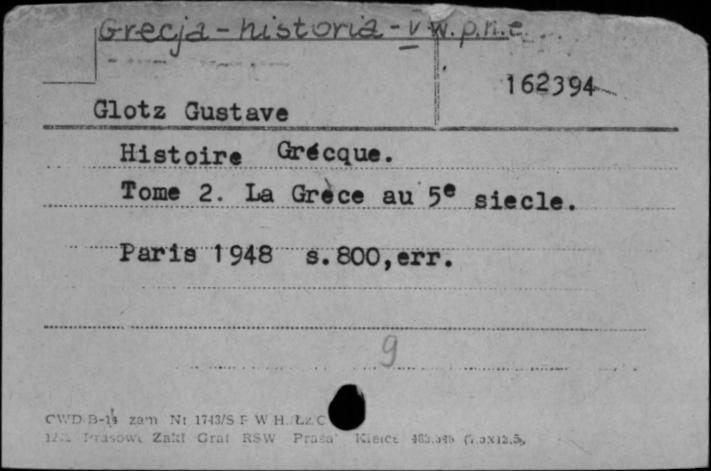 Grecja - historia - V w. p.n.e.
162394
Glotz Gustave
Histoire Grécque.
Tome 2. La Grèce au 5e siecle.
Paris 1948 s.800,err.
9
CWD B-14 zam Nr 1743/S P W H. Łz C
Prasowe Zakł Graf RSW "Prasa" Kielce